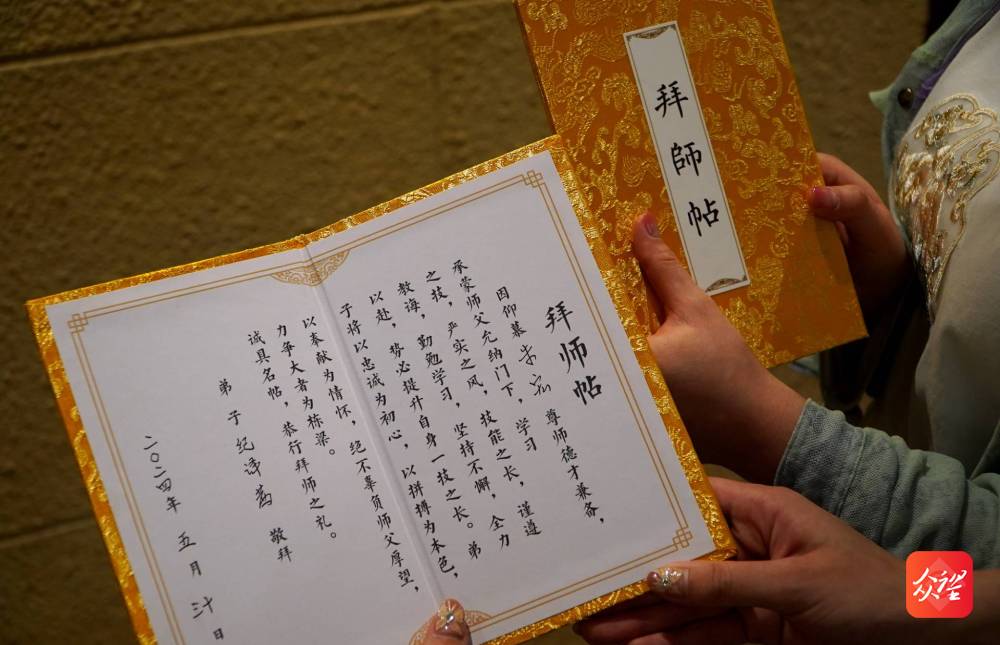 拜師帖
拜师帖
因仰慕 尊师德才兼备，
承蒙师父允纳门下，学习
之技，严实之风，技能之长，谨遵
教诲，勤勉学习，坚持不懈，全力
以赴，势必提升自身一技之长。弟
子将以忠诚为初心，以拼搏为本色，
以奉献为情怀，绝不辜负师父厚望，
力争大者为栋梁。
诚具名帖，恭行拜师之礼。
弟子 纪 敬拜
二〇二四年 五月 日
众望